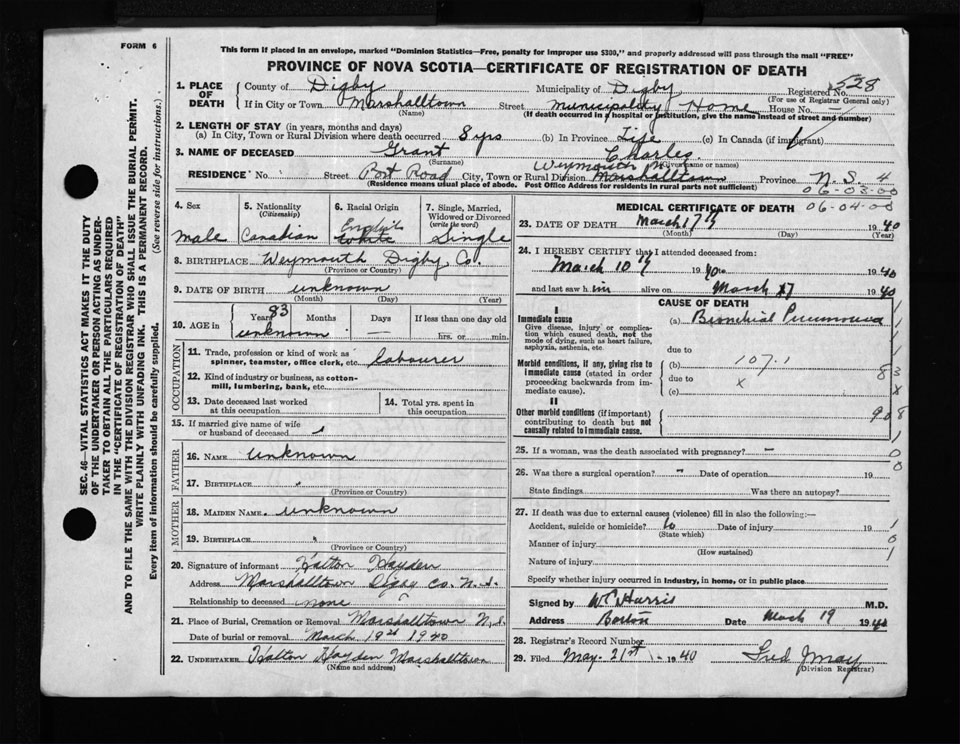 FORM 6
This form if placed in an envelope, marked "Dominion Statistics—Free, penalty for improper use $300," and properly addressed will pass through the mail "FREE"
PROVINCE OF NOVA SCOTIA—CERTIFICATE OF REGISTRATION OF DEATH
528
1. PLACE OF DEATH
County of Digby Municipality of Digby Registered No.
(For use of Registrar General only)
If in City or Town Marshalltown Street Municipality Home House No.
(Name) (If death occurred in a hospital or institution, give the name instead of street and number)
2. LENGTH OF STAY (in years, months and days)
(a) In City, Town or Rural Division where death occurred 8 yrs (b) In Province Life (c) In Canada (if immigrant)
3. NAME OF DECEASED Grant Charles
(Surname) (Given name or names)
RESIDENCE No. Street Post Road City, Town or Rural Division Weymouth Marshalltown Province N.S. 4
(Residence means usual place of abode. Post Office Address for residents in rural parts not sufficient)
06-03-00
06-04-00
4. Sex 5. Nationality (Citizenship) 6. Racial Origin 7. Single, Married, Widowed or Divorced (write the word)
Male Canadian English White Single
8. BIRTHPLACE Weymouth Digby Co.
(Province or Country)
9. DATE OF BIRTH unknown
(Month) (Day) (Year)
10. AGE in Years 83 Months Days If less than one day old
unknown hrs. or min.
OCCUPATION
11. Trade, profession or kind of work as spinner, teamster, office clerk, etc. labourer
12. Kind of industry or business, as cotton-mill, lumbering, bank, etc.
13. Date deceased last worked at this occupation
14. Total yrs. spent in this occupation
15. If married give name of wife or husband of deceased
FATHER
16. NAME unknown
17. BIRTHPLACE
(Province or Country)
MOTHER
18. MAIDEN NAME unknown
19. BIRTHPLACE
(Province or Country)
20. Signature of informant Halton Hayden
Address Marshalltown Digby Co. N.S.
Relationship to deceased none
21. Place of Burial, Cremation or Removal Marshalltown N.S.
Date of burial or removal March 19th 1940
22. UNDERTAKER Halton Hayden Marshalltown
(Name and address)
MEDICAL CERTIFICATE OF DEATH
23. DATE OF DEATH March 17th 1940
(Month) (Day) (Year)
24. I HEREBY CERTIFY that I attended deceased from:
March 10th 1940 to 1940
and last saw him alive on March 17 1940
CAUSE OF DEATH
I
Immediate cause
Give disease, injury or complication which caused death, not the mode of dying, such as heart failure, asphyxia, asthenia, etc.
(a) Bronchial Pneumonia
due to
Morbid conditions, if any, giving rise to immediate cause (stated in order proceeding backwards from immediate cause).
(b) 107.1
due to x
(c)
II
Other morbid conditions (if important) contributing to death but not causally related to immediate cause.
83
x
908
25. If a woman, was the death associated with pregnancy?
26. Was there a surgical operation? Date of operation 19
State findings Was there an autopsy?
27. If death was due to external causes (violence) fill in also the following:—
Accident, suicide or homicide? Date of injury 19
(State which)
Manner of injury
(How sustained)
Nature of injury
Specify whether injury occurred in industry, in home, or in public place
Signed by W C Harris M.D.
Address Barton Date March 19 1940
28. Registrar's Record Number
29. Filed May 21st 1940 Fred J May
(Division Registrar)
SEC. 46—VITAL STATISTICS ACT MAKES IT THE DUTY
OF THE UNDERTAKER OR PERSON ACTING AS UNDER-
TAKER TO OBTAIN ALL THE PARTICULARS REQUIRED
IN THE "CERTIFICATE OF REGISTRATION OF DEATH"
AND TO FILE THE SAME WITH THE DIVISION REGISTRAR WHO SHALL ISSUE THE BURIAL PERMIT.
WRITE PLAINLY WITH UNFADING INK. THIS IS A PERMANENT RECORD.
Every item of information should be carefully supplied. (See reverse side for instructions.)